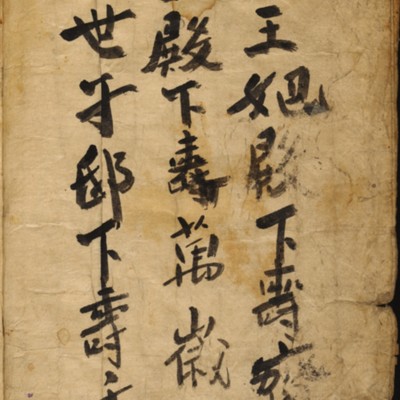 王妃殿下壽齊
殿下壽萬歲
世子邸下壽